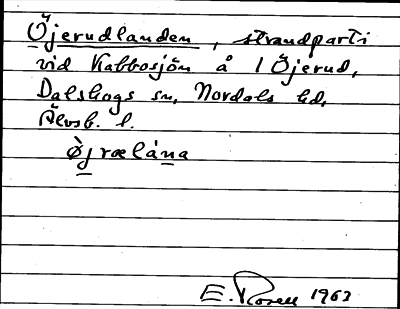 Öjerudlanden, strandparti
vid Kabbosjön å 1 Öjerud,
Dalskogs sn, Nordals hd,
Älvsb. l.
Øjrælåna
E. Rosell 1963